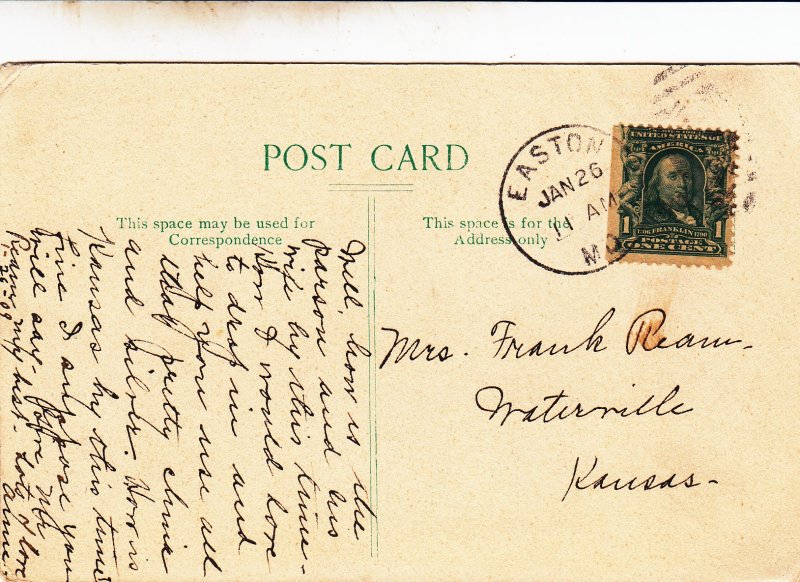 POST CARD
This space may be used for
Correspondence
This space is for the
Address only
EASTON
JAN 26
11 AM
MO
UNITED STATES OF
AMERICA
1 1706 FRANKLIN 1790 1
POSTAGE
ONE CENT
Mrs. Frank Ream-
Waterville
Kansas-
Well, how is the
Parson and his
wife by this time-
How I would love
to drop in and
help you use all
that pretty china
and silver. How is
Kansas by this time?
Fine I suppose you
will say.
my best- Lots of love
1-26-09